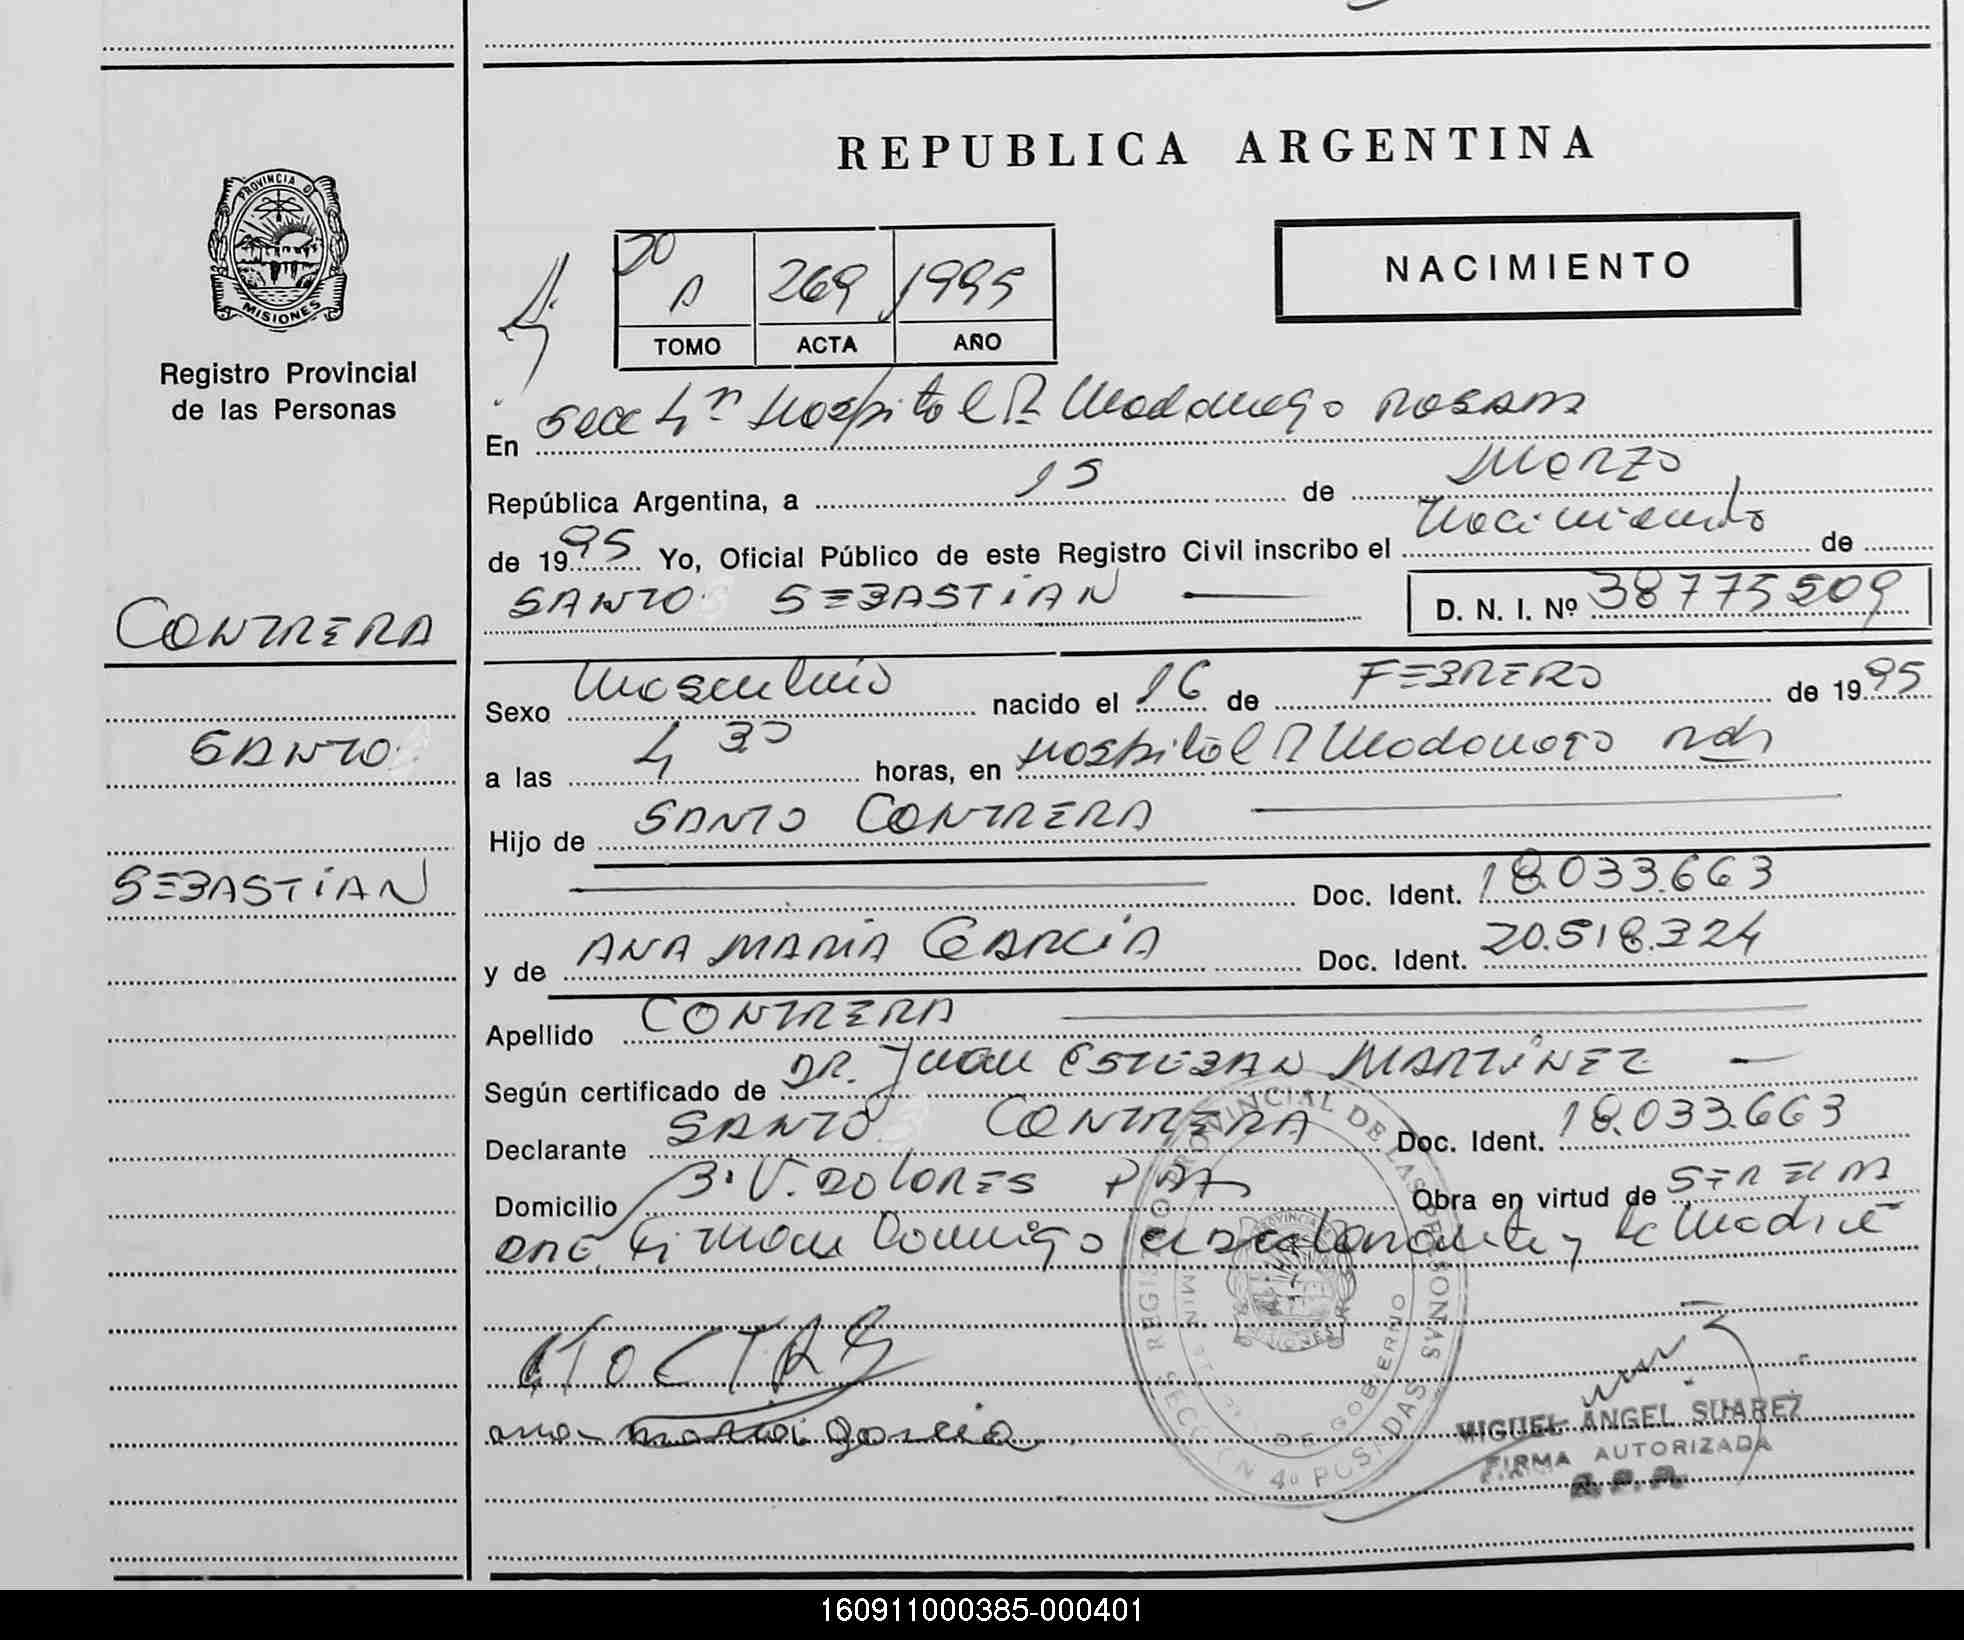 REPUBLICA ARGENTINA
PROVINCIA DE
MISIONES
Registro Provincial
de las Personas
NACIMIENTO
269 1995
TOMO ACTA AÑO
En Secc 4ª Hospital R. Madariaga
República Argentina, a 15 de Marzo
de 1995 Yo, Oficial Público de este Registro Civil inscribo el Nacimiento de
SANTO SEBASTIAN D. N. I. Nº 38775509
CONTRERA
SANTO
SEBASTIAN
Sexo Masculino nacido el 16 de FEBRERO de 1995
a las 4 30 horas, en Hospital R Madariaga
Hijo de SANTO CONTRERA
Doc. Ident. 18.033.663
y de ANA MARIA GARCIA Doc. Ident. 20.518.324
Apellido CONTRERA
Según certificado de DR. Juan ESTEBAN MARTINEZ
Declarante SANTO CONTRERA Doc. Ident. 18.033.663
Domicilio B. V. DOLORES Obra en virtud de SER EL PA
DRE. Firman Conmigo el Declarante y la Madre
ana maria garcia
REGISTRO PROVINCIAL DE LAS PERSONAS
SECCION 4ª POSADAS
DE GOBIERNO
MIGUEL ANGEL SUAREZ
FIRMA AUTORIZADA
R. P. P.
160911000385-000401